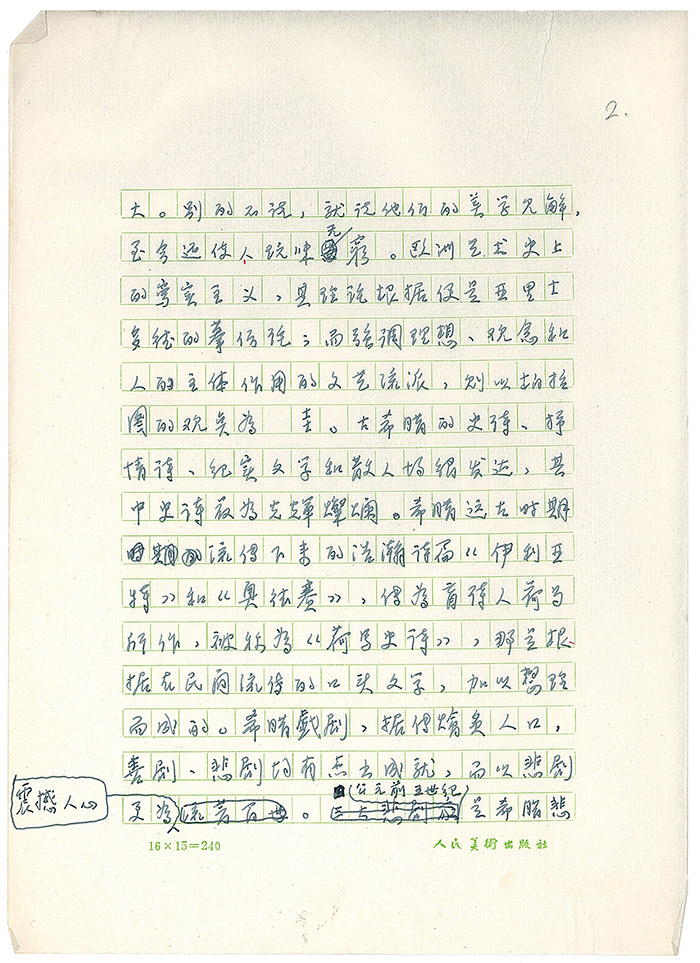 2.
大。别的不说，就说他们的美学见解，
至今还使人玩味无穷。欧洲艺术史上
的写实主义，其理论根据便是亚里士
多德的摹仿说；而强调理想、观念和
人的主体作用的文艺流派，则以柏拉
图的观点为 圭。古希腊的史诗、抒
情诗、纪实文学和散文均很发达，其
中史诗最为光辉灿烂。希腊远古时期
流传下来的浩瀚诗篇《伊利亚
特》和《奥德赛》，传为盲诗人荷马
所作，被称为《荷马史诗》，那是根
据在民间流传的口头文学，加以整理
而成的。希腊戏剧，据传脍炙人口，
喜剧、悲剧均有杰出成就，而以悲剧
震撼人心
公元前五世纪
更为流芳百世。是希腊悲
16×15=240 人民美術出版社